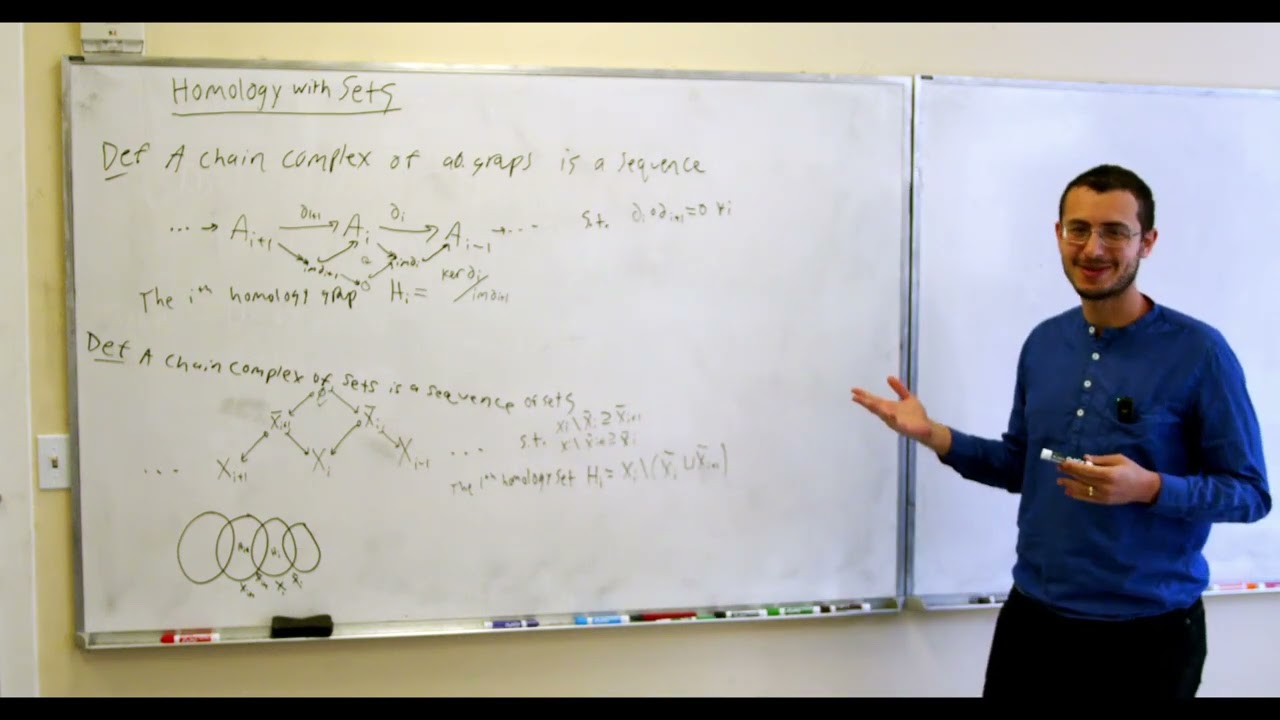 Homology with Sets
Def A chain complex of ab. groups is a sequence
... → A_{i+1} →^{∂_{i+1}} A_i →^{∂_i} A_{i-1} → ... s.t. ∂_i∘∂_{i+1}=0 ∀i
im∂_{i+1} im∂_i
0
The i^{th} homology group H_i = ker∂_i/im∂_{i+1}
Def A chain complex of sets is a sequence of sets
∅
X̄_{i+1} X̄_i
... X_{i+1} X_i X_{i-1} ...
s.t. X_i \ X̄_i ⊇ X̄_{i+1}
X_i \ X̄_{i+1} ⊇ X̄_i
The i^{th} homology set H_i = X_i \ (X̄_i ∪ X̄_{i+1})
H_{i+1} H_i
X_{i+1} X_i